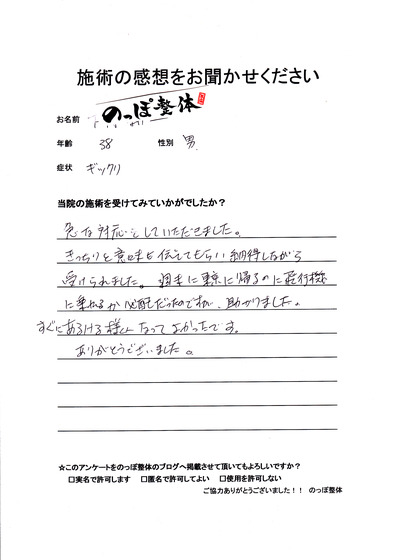 施術の感想をお聞かせください
お名前 のっぽ整体
年齢 38 性別 男
症状 ギックリ
当院の施術を受けてみていかがでしたか？
急な対応をしていただきました。
きっちりと意味を伝えてもらい納得しながら
受けられました。週末に東京に帰るのに飛行機
に乗れるか心配だったのですが、助かりました。
すぐにあるける様になってよかったです。
ありがとうございました。
☆このアンケートをのっぽ整体のブログへ掲載させて頂いてもよろしいですか？
□実名で許可します □匿名で許可してよい □使用を許可しない
ご協力ありがとうございました！！ のっぽ整体